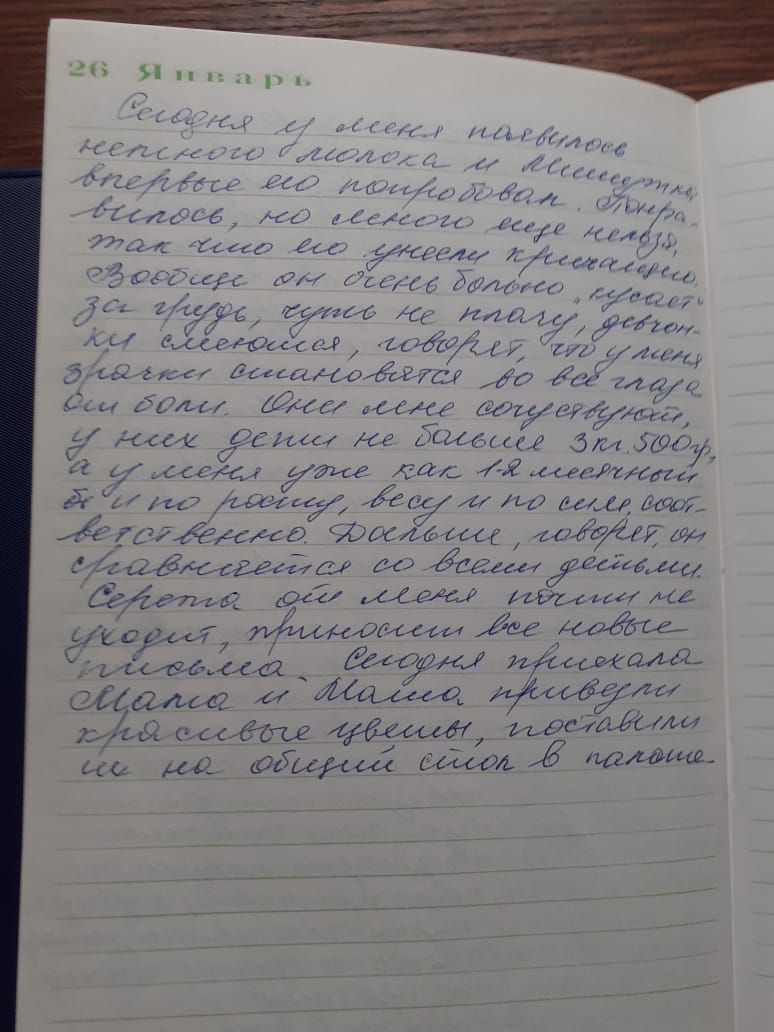 26 Январь
Сегодня у меня появилось
немного молока и Мишутка
впервые его попробовал. Понра-
вилось, но много еще нельзя,
так что его унесли кричащего.
Вообще он очень больно „кусает“
за грудь, чуть не плачу, девчон-
ки смеются, говорят, что у меня
зрачки становятся во все глаза
от боли. Они мне сочуствуют,
у них дети не больше 3кг.500гр,
а у меня уже как 1-2 месячный
и по росту, весу и по силе, соот-
ветственно. Дальше, говорят, он
сравняется со всеми детьми.
Сережа от меня почти не
уходит, приносит все новые
письма. Сегодня приехала
Мама и Маша привезли
красивые цветы, поставили
их на общий стол в палате.